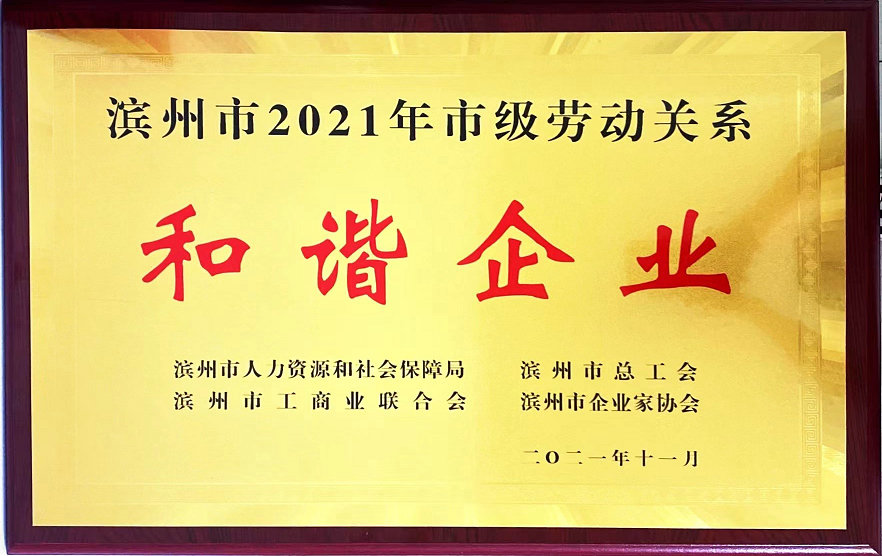 滨州市2021年市级劳动关系
和谐企业
滨州市人力资源和社会保障局 滨州市总工会
滨州市工商业联合会 滨州市企业家协会
二〇二一年十一月